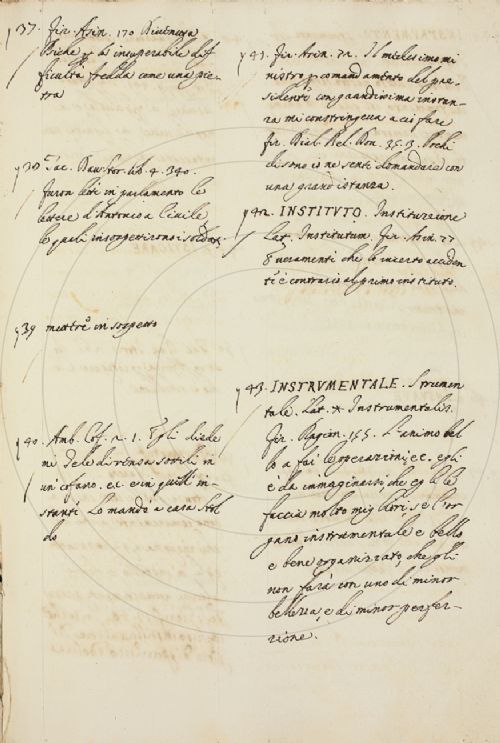 37. Fir. Asin. 170 Divenuta
Psiche p la insuperabile dif
ficultà fredda come una pie-
tra
38 Tac. Dav. Stor. lib. 4. 340.
furon lette in parlamento le
lettere d'Antonio a Civile
le quali insospettirono i soldati
39 metter in sospetto
40. Amb. Cof. 2. 1. Egli diede
mi delle di rensa sottili in
un cofano. ec. e in quelli in-
stanti lo mandò a casa
do
41. Fir. Asin. 72. Il mielesimo mi
nistro p comandamento del pre-
sidente con grandissima instan-
za mi constringeva a ciò fare
Fir. Dial. Bel. Don. 353. Perchè
di sono io ne senti domandare con
una grand'istanza.
42. INSTITUTO. Instituzione
Lat. Institutum. Fir. Asin. 27
veramenti che lo incerto acciden
te è contrario al primo instituto.
43. INSTRVMENTALE. Strumen
tale. Lat. * Instrumentalis.
Fir. Ragion. 155. L'animo bel
lo a far le operazioni; ec. egli
è da immaginarsi, che egli le
faccia molto migliori, se l'or
gano instrumentale e bello
e bene organizzato, che egli
non farà con uno di minor
bellezza, e di minor perfe-
zione.